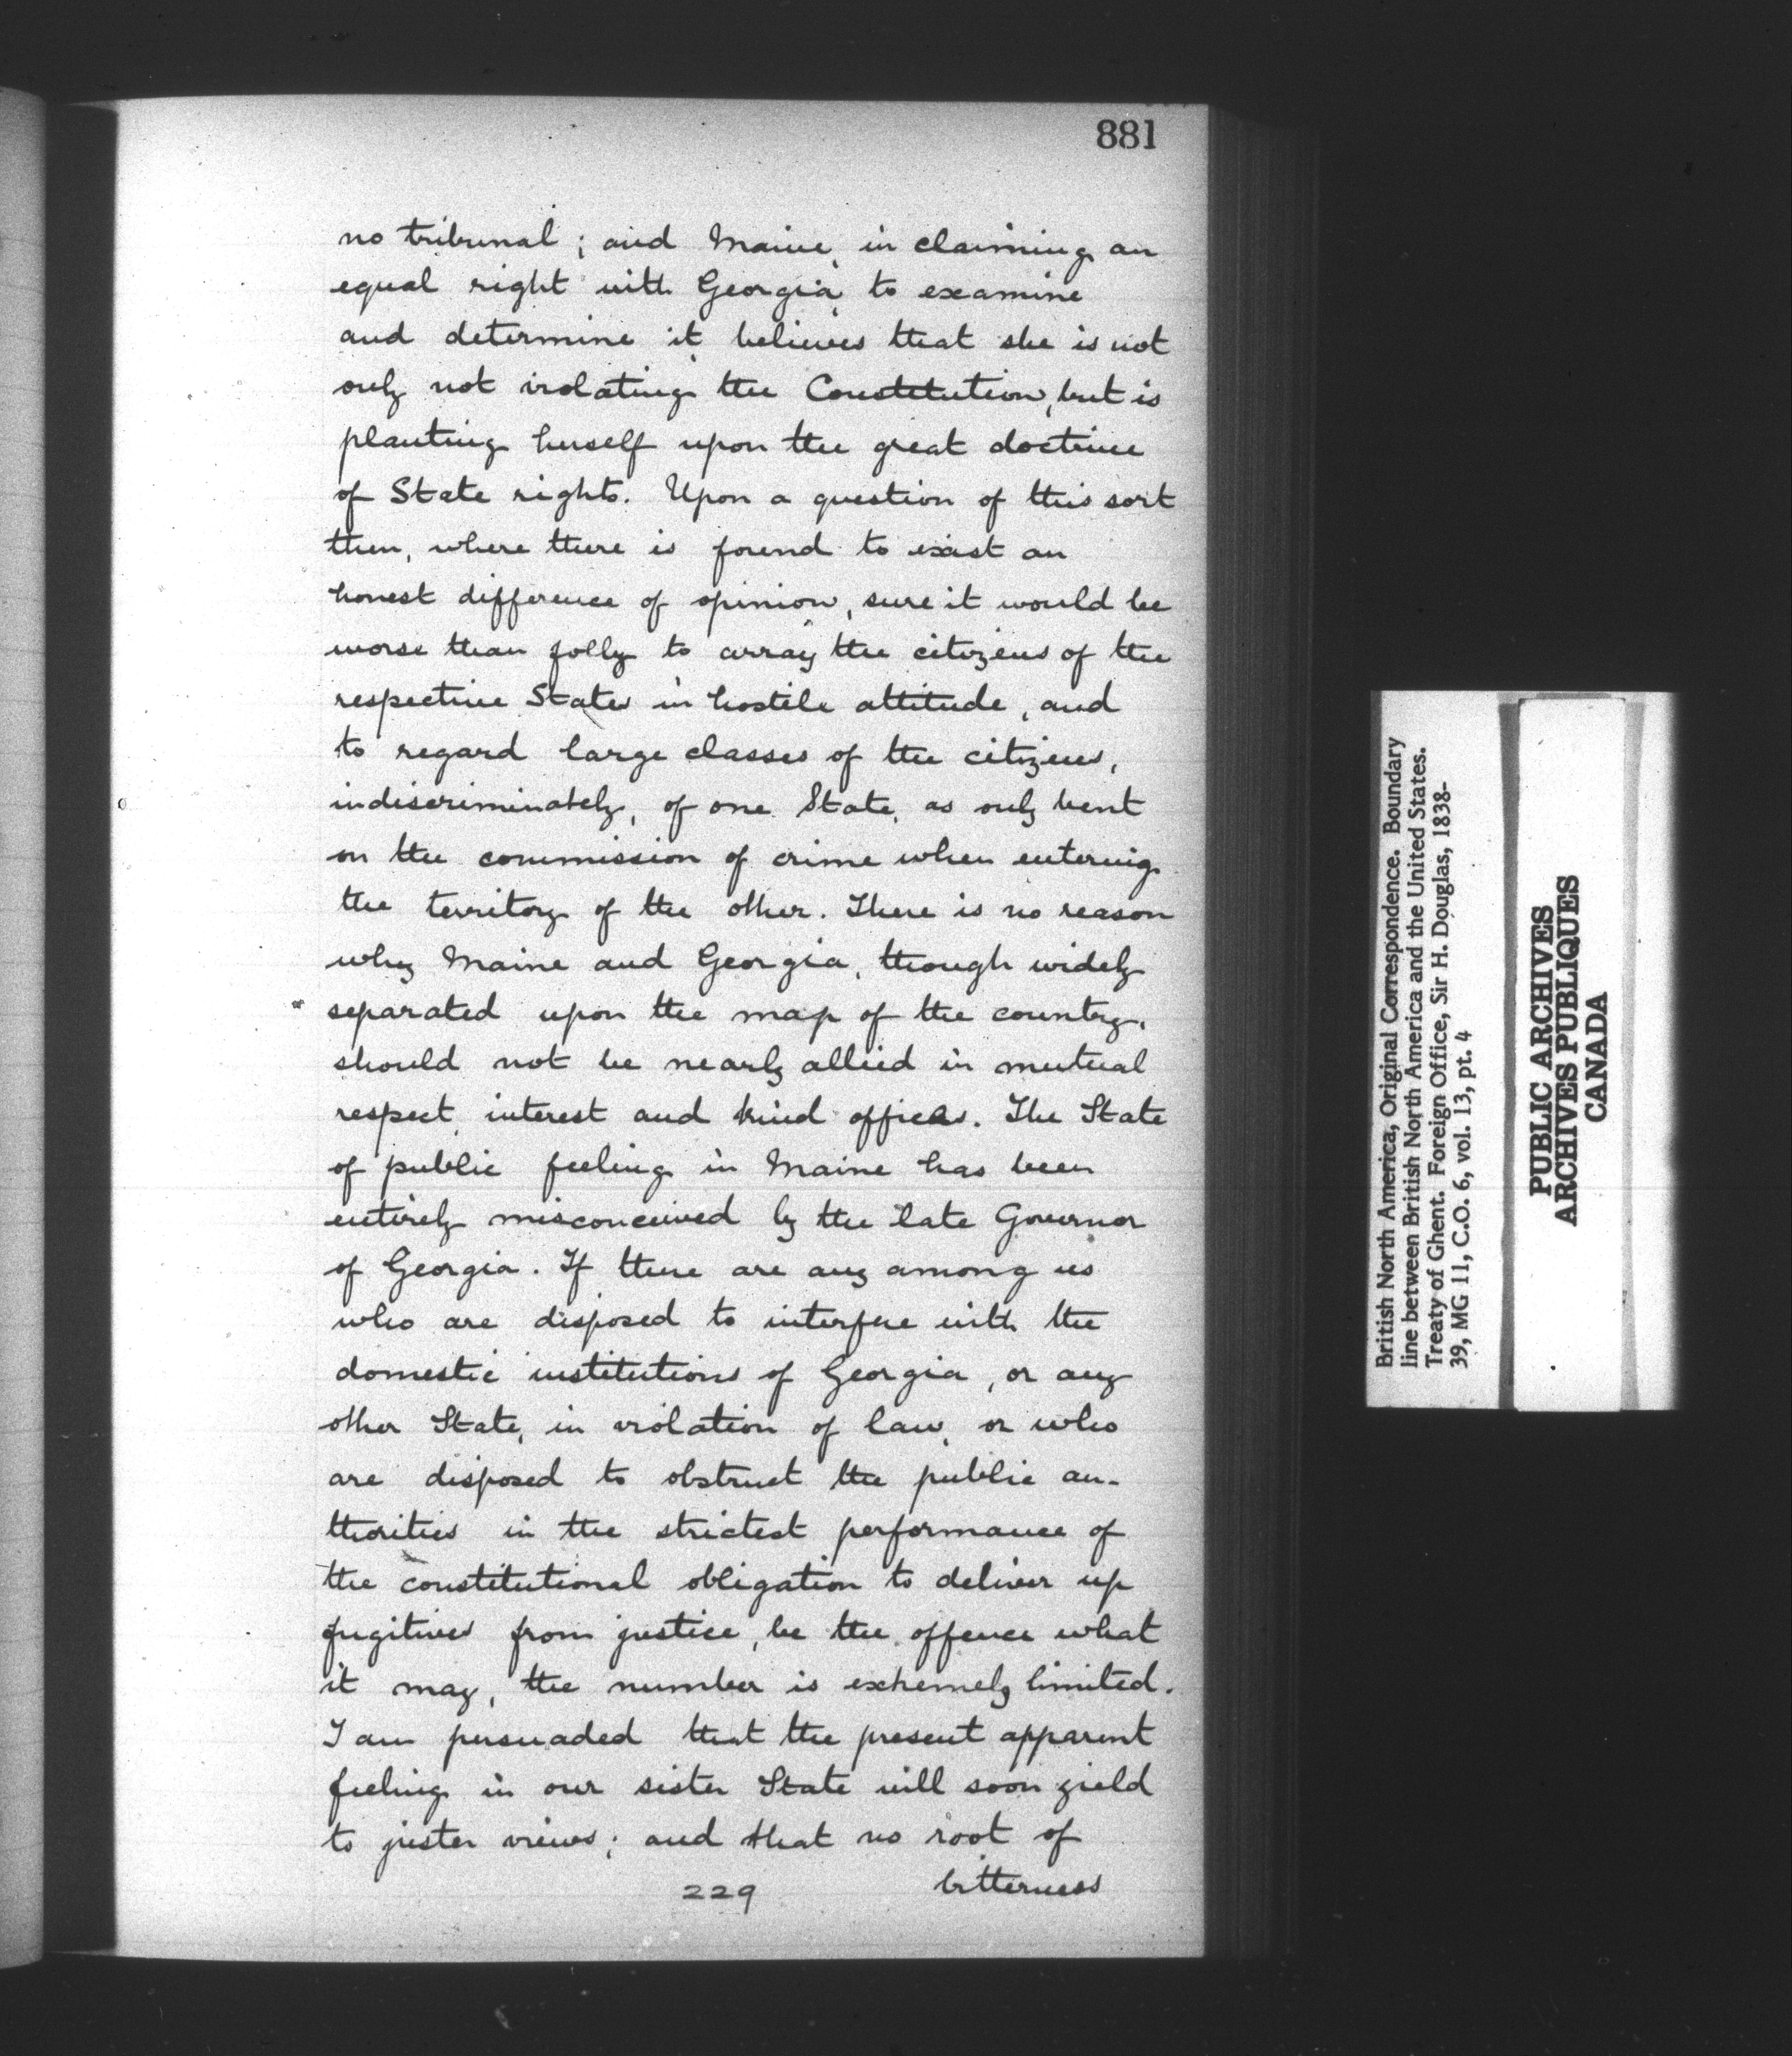 881
no tribunal; and Maine, in claiming an
equal right with Georgia, to examine
and determine it, believes that she is not
only not violating the Constitution, but is
planting herself upon the great doctrine
of State rights. Upon a question of this sort
then, where there is found to exist an
honest difference of opinion, sure it would be
worse than folly to array the citizens of the
respective States in hostile attitude, and
to regard large classes of the citizens,
indiscriminately, of one State, as only bent
on the commission of crime when entering
the territory of the other. There is no reason
why Maine and Georgia, though widely
separated upon the map of the country,
should not be nearly allied in mutual
respect, interest and kind offices. The State
of public feeling in Maine has been
entirely misconceived by the late Governor
of Georgia. If there are any among us
who are disposed to interfere with the
domestic institutions of Georgia, or any
other State, in violation of law, or who
are disposed to obstruct the public au-
thorities in the strictest performance of
the constitutional obligation to deliver up
fugitives from justice, be the offence what
it may, the number is extremely limited.
I am persuaded that the present apparent
feeling in our sister State will soon yield
to juster views; and that no root of
229 bitterness
British North America, Original Correspondence. Boundary
line between British North America and the United States.
Treaty of Ghent. Foreign Office, Sir H. Douglas, 1838-
39, MG 11, C.O. 6, vol. 13, pt. 4
PUBLIC ARCHIVES
ARCHIVES PUBLIQUES
CANADA